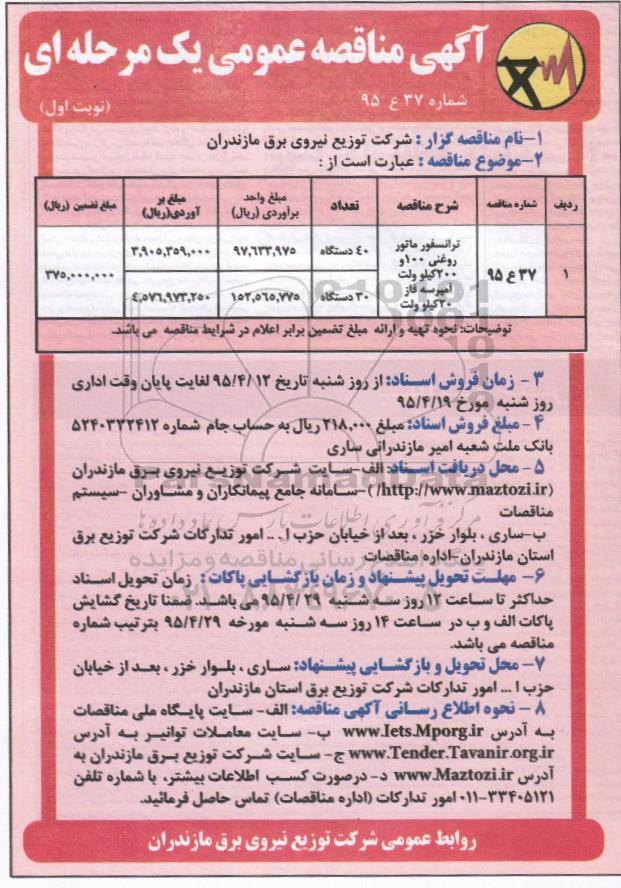 آگهی مناقصه عمومی یک مرحله ای
شماره ۳۷ ع ۹۵
(نوبت اول)
۱-نام مناقصه گزار : شرکت توزیع نیروی برق مازندران
۲-موضوع مناقصه : عبارت است از :
ردیف شماره مناقصه شرح مناقصه تعداد مبلغ واحد برآوردی (ریال) مبلغ بر آوردی(ریال) مبلغ تضمین (ریال)
۱ ۳۷ ع ۹۵ ترانسفور ماتور روغنی ۱۰۰و ۲۰۰کیلو ولت آمپرسه فاز ۲۰کیلو ولت
۴۰ دستگاه ۹۷,۶۳۳,۹۷۵ ۳,۹۰۵,۳۵۹,۰۰۰
۳۰ دستگاه ۱۵۲,۵۶۵,۷۷۵ ۴,۵۷۶,۹۷۳,۲۵۰
۳۷۵,۰۰۰,۰۰۰
توضیحات: نحوه تهیه و ارائه مبلغ تضمین برابر اعلام در شرایط مناقصه می باشد.
۳- زمان فروش اسناد: از روز شنبه تاریخ ۹۵/۴/۱۲ لغایت پایان وقت اداری
روز شنبه مورخ ۹۵/۴/۱۹
۴- مبلغ فروش اسناد: مبلغ ۲۱۸,۰۰۰ ریال به حساب جام شماره ۵۲۴۰۳۳۲۴۱۲
بانک ملت شعبه امیر مازندرانی ساری
۵- محل دریافت اسناد: الف-سایت شرکت توزیع نیروی برق مازندران
(http://www.maztozi.ir/)-سامانه جامع پیمانکاران و مشاوران -سیستم
مناقصات
ب-ساری ، بلوار خزر ، بعد از خیابان حزب ا... امور تدارکات شرکت توزیع برق
استان مازندران-اداره مناقصات
۶- مهلت تحویل پیشنهاد و زمان بازگشایی پاکات : زمان تحویل اسناد
حداکثر تا ساعت ۱۲ روز سه شنبه ۹۵/۴/۲۹ می باشد. ضمنا تاریخ گشایش
پاکات الف و ب در ساعت ۱۴ روز سه شنبه مورخه ۹۵/۴/۲۹ بترتیب شماره
مناقصه می باشد.
۷- محل تحویل و بازگشایی پیشنهاد: ساری ، بلوار خزر ، بعد از خیابان
حزب ا ... امور تدارکات شرکت توزیع برق استان مازندران
۸- نحوه اطلاع رسانی آگهی مناقصه: الف- سایت پایگاه ملی مناقصات
به آدرس www.Iets.Mporg.ir ب- سایت معاملات توانیر به آدرس
www.Tender.Tavanir.org.ir ج- سایت شرکت توزیع برق مازندران به
آدرس www.Maztozi.ir د- درصورت کسب اطلاعات بیشتر، با شماره تلفن
۰۱۱-۳۳۴۰۵۱۲۱ امور تدارکات (اداره مناقصات) تماس حاصل فرمائید.
روابط عمومی شرکت توزیع نیروی برق مازندران
ParsNamadData